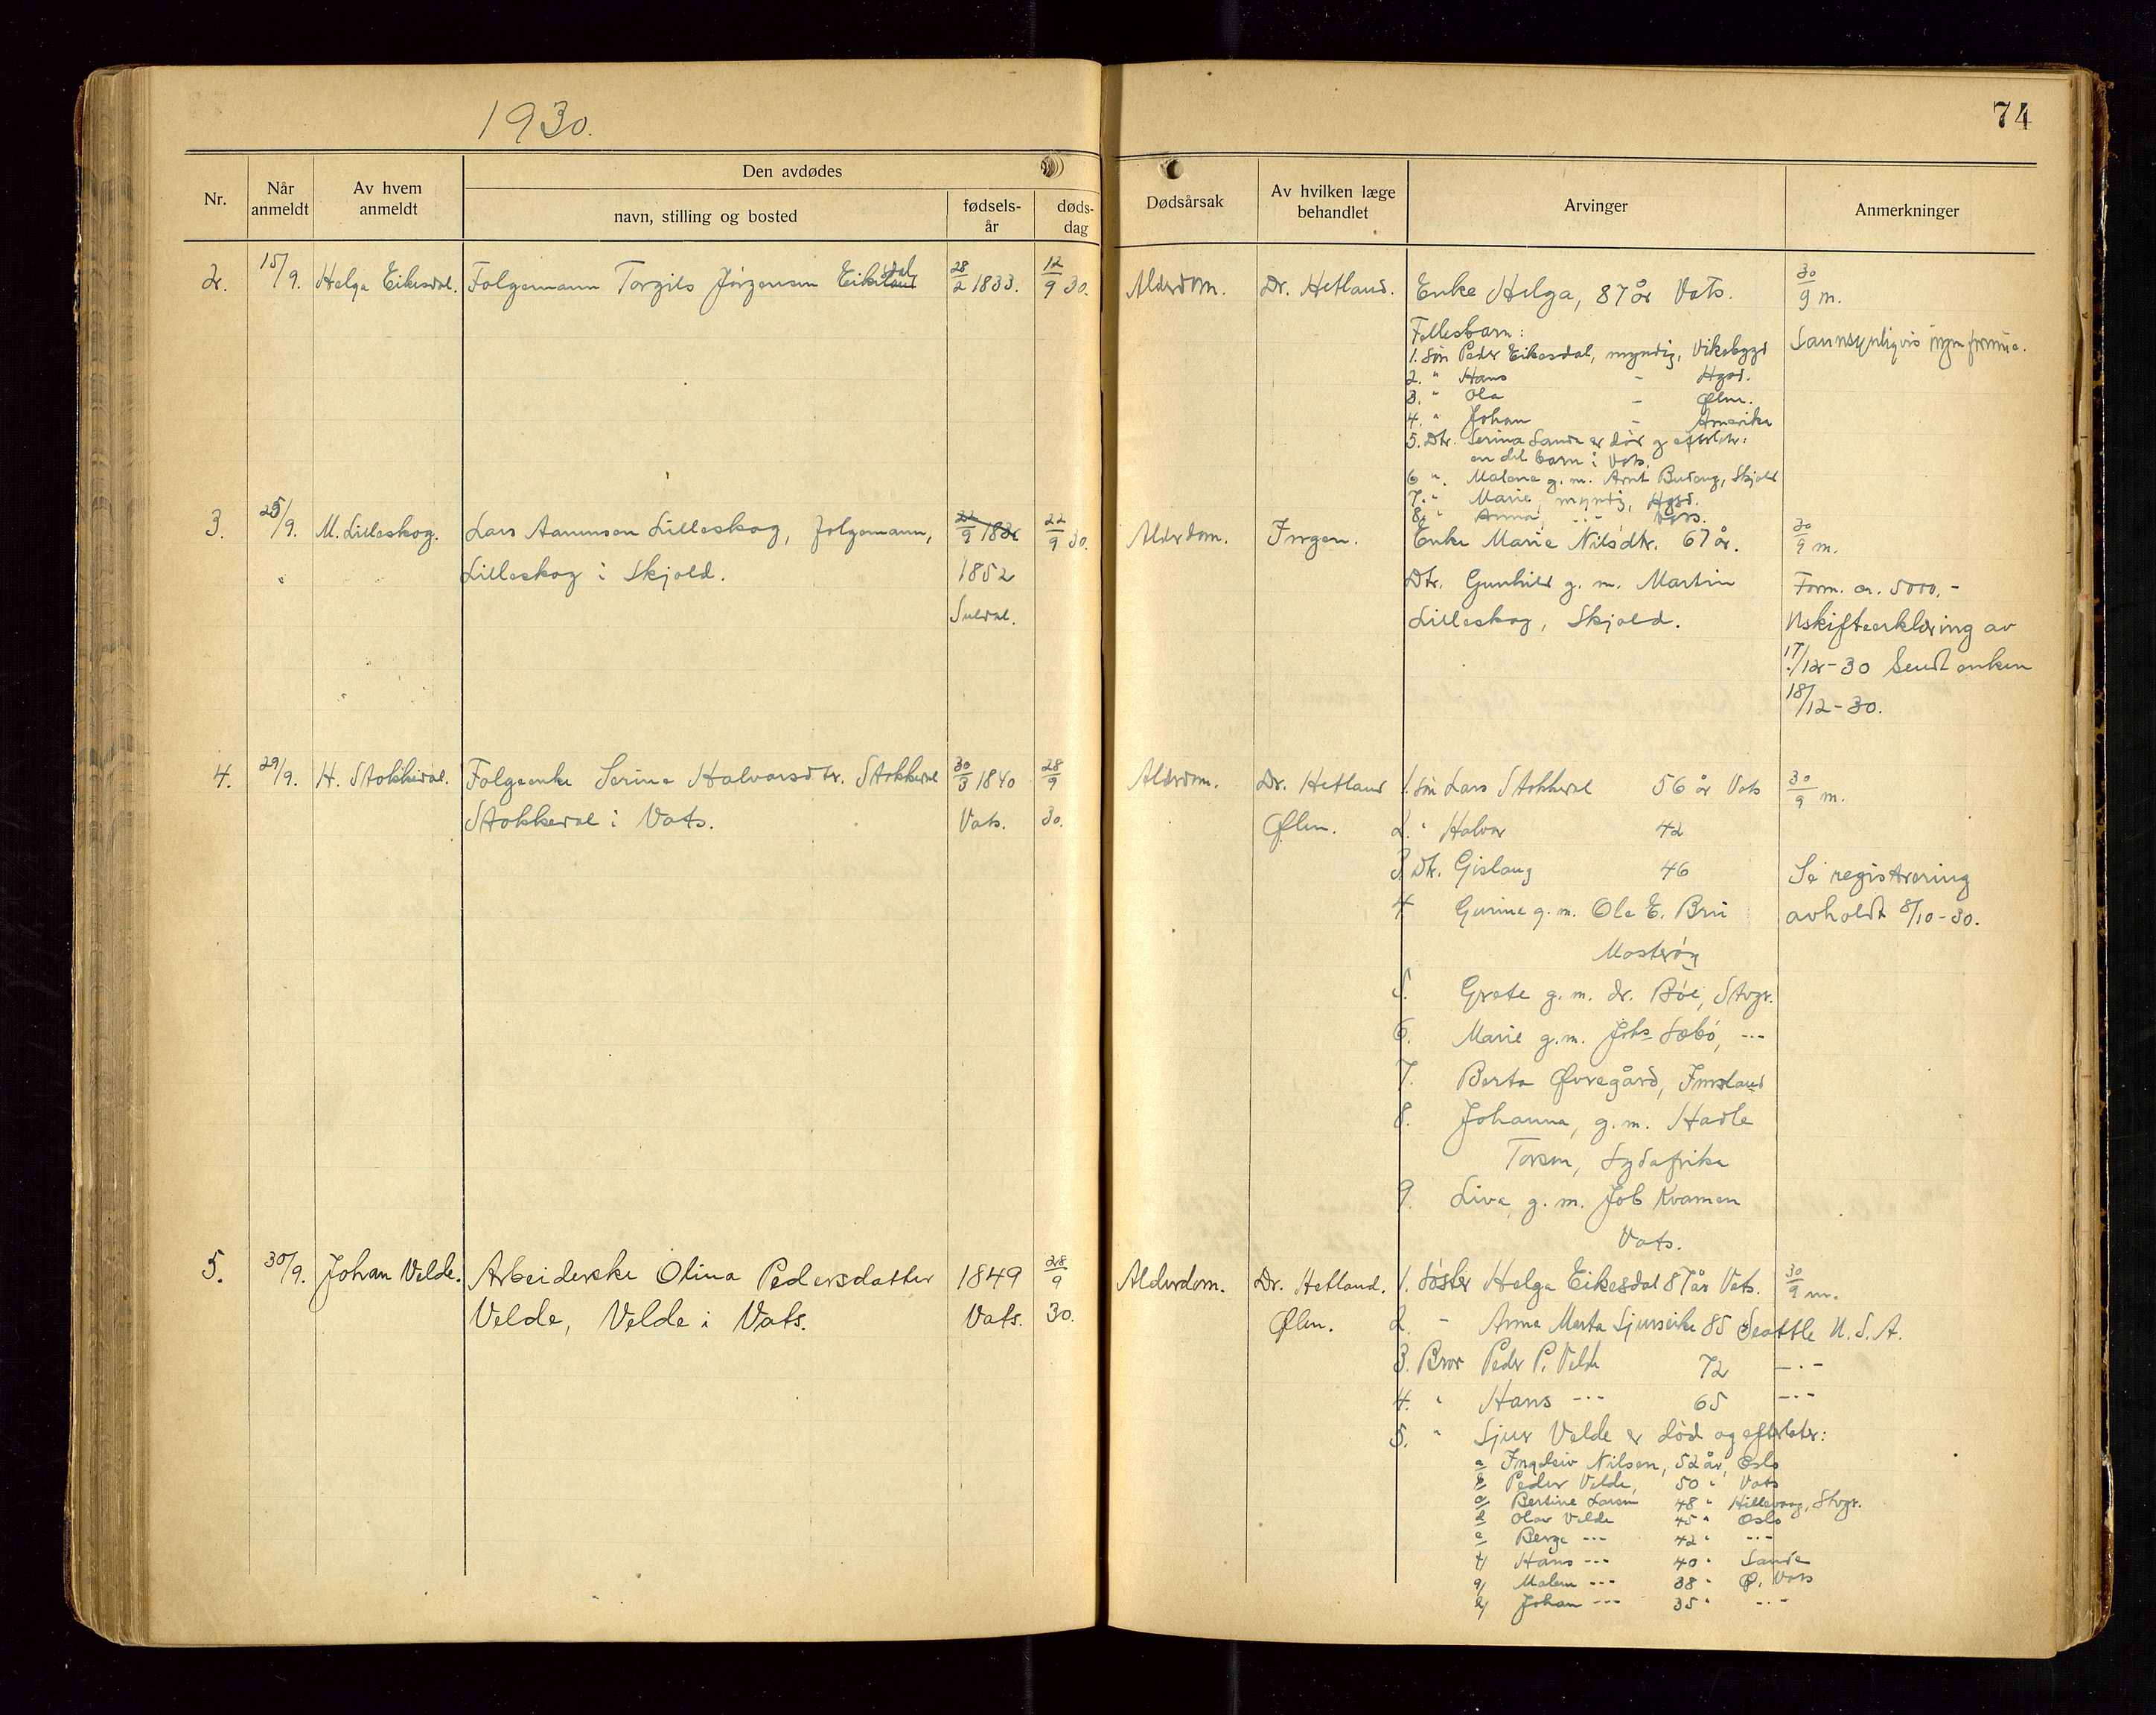 1930.
74
Nr.
Når anmeldt
Av hvem anmeldt
Den avdødes
navn, stilling og bosted
fødsels-år
døds-dag
Dødsårsak
Av hvilken læge behandlet
Arvinger
Anmerkninger
2. 15/9. Helga Eikesdal. Folgemann Torgils Jörgensen Eikeland sdal 28/2 1833. 12/9 30. Alderdom. Dr. Hetland. Enke Helga, 87 år Vats. 30/9 m.
Fellesbarn:
1. Sön Peder Eikesdal, myndig, Vikebygd Sannsynligvis ingen formue.
2. " Hans - Hgsd.
3. " Ola - Ølen.
4. " Johan - Amerika
5. Dtr. Serina Sande er död og efterlater:
en del barn i Vats.
6 ". Malene g. m. Arnt Skjold
7. " Marie, myndig, Hgsd.
8. " Anna, -.- Vats.
3. 25/9. M. Lilleskog. Lars Aamunsen Lilleskog, folgemann, 22/9 22/9 30. Alderdom. Ingen. Enke Marie Nilsdtr. 67 år. 30/9 m.
Lilleskog i Skjold. 1852 Dtr. Gunhild g. m. Martin Form. ca. 5000.-
Suldal. Lilleskog, Skjold. Uskifteerklæring av
17/12-30 Sendt enken
18/12-30.
4. 29/9. H. Stokkedal. Folgeenke Serine Halvorsdtr. Stokkedal 30/3 1840 28/9 Alderdom. Dr. Hetland 1. Sön Lars Stokkedal 56 år Vats 30/9 m.
Stokkedal i Vats. Vats. 30. Ølen. 2. " Halvor 42
3. Dtr. Gislaug 46 Se registrering
4 Gurine g. m. Ole E. Bru avholdt 8/10-30.
Mosteröy
5. Grete g. m. dr. Böe, Stvgr.
6. Marie g. m. Johs Sæbö, -.-
7. Berta Øvregård, Imsland
8. Johanna, g. m. Hadle
Torsen, Sydafrika
9. Live, g. m. Job Kvamen
Vats.
5. 30/9. Johan Velde. Arbeiderske Olina Pedersdatter 1849 28/9 Alderdom. Dr. Hetland. 1. Söster Helga Eikesdal 87 år Vats. 30/9 m.
Velde, Velde i Vats. Vats. 30. Ølen. 2. - Anna Marta Sjurseike 85 Seattle U. S. A.
3. Bror Peder P. Velde 72 -.-
4. " Hans -.- 65 -.-
5. " Sjur Velde er död og efterlater:
a Ingeleiv Nilsen, 52 år, Oslo
b Peder Velde, 50 " Vats
c Bertine Larsen 48 " Hillevaag, Stvgr.
d Olav Velde 45 " Oslo
e Berge -.- 42 " -.-
f/ Hans -.- 40 " Sande
g/ Malene -.- 38 " Ø. Vats
h/ Johan -.- 35 " -.-